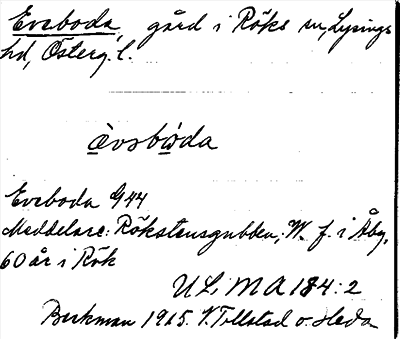 Eveboda, gård i Röks sn, Lysings
hd, Österg. l.
èvsbo̱̍da
Eveboda G44
Meddelare: Rökstensgubben, W. f. i Åby,
60 år i Rök
ULMA 184:2
Beckman 1915. V. Tollstad o. Heda